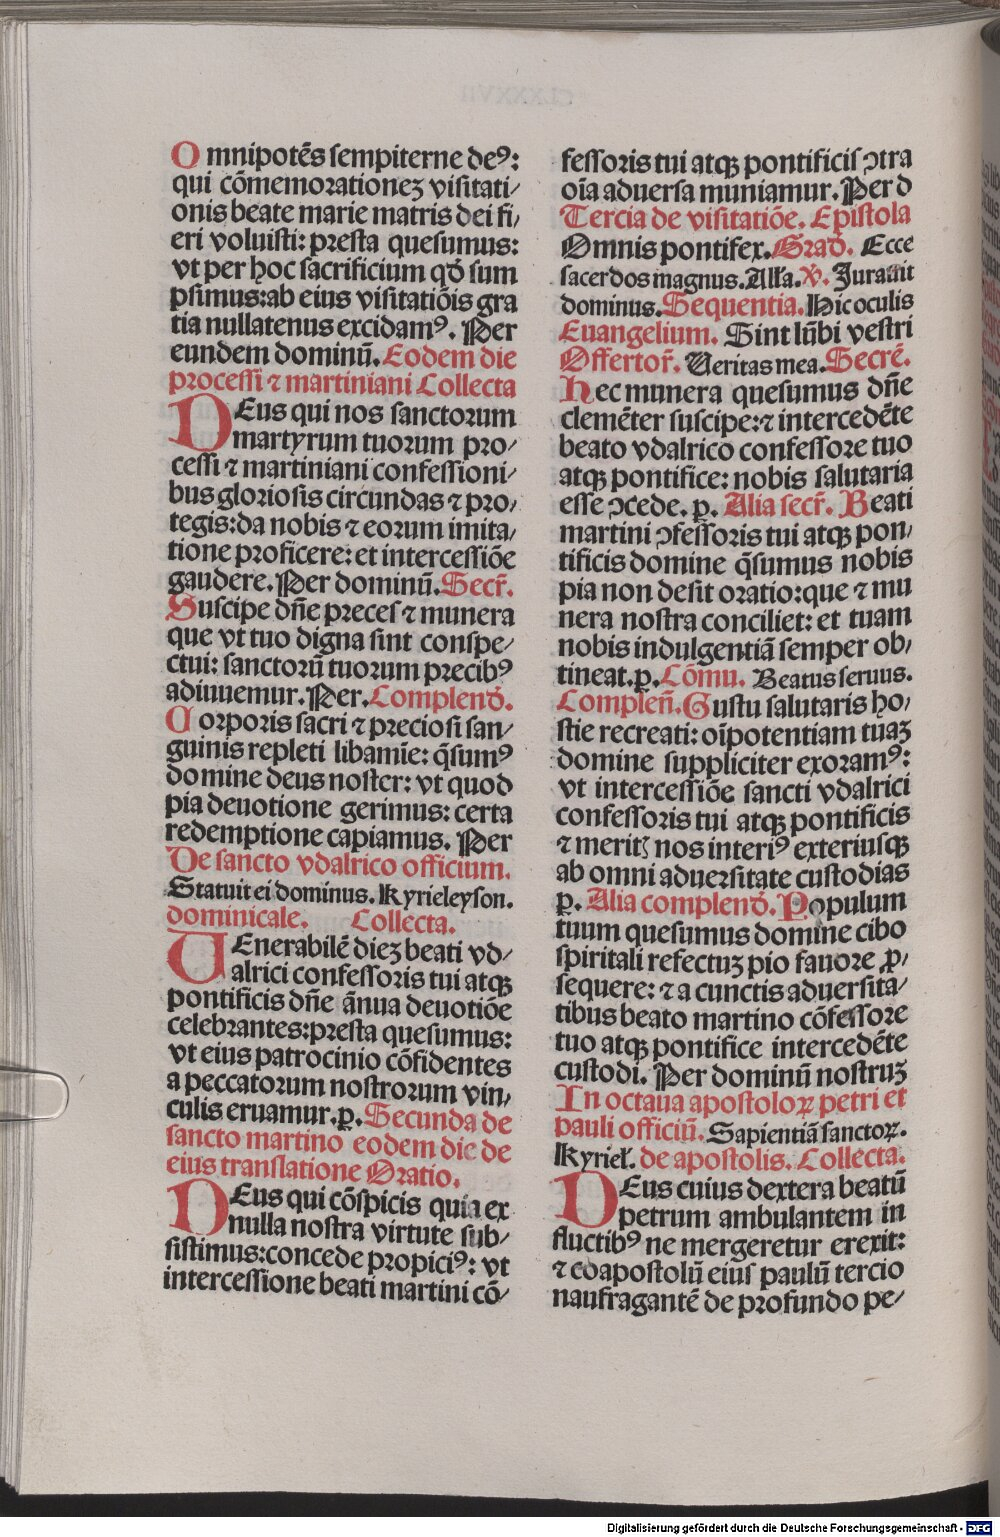 Omnipotēs sempiterne deꝰ:
qui cōmemorationeꝫ visitati⸗
onis beate marie matris dei fi⸗
eri voluisti: presta quesumus:
vt per hoc sacrificium qḋ sum
psimus: ab eius visitatiōis gra
tia nullatenus excidamꝰ. Per
eundem dominū. Eodem die
processi ⁊ martiniani Collecta
DEus qui nos sanctorum
martyrum tuorum pro⸗
cessi ⁊ martiniani confessioni⸗
bus gloriosis circundas ⁊ pro⸗
tegis: da nobis ⁊ eorum imita⸗
tione proficere: et intercessiōe
gaudere. Per dominū. Secr̄.
Suscipe dn̄e preces ⁊ munera
que vt tuo digna sint conspe⸗
ctui: sanctorū tuorum precibꝰ
adiuuemur. Per. Complenḋ.
Corporis sacri ⁊ preciosi san⸗
guinis repleti libamīe: q̄sumꝰ
domine deus noster: vt quod
pia deuotione gerimus: certa
redemptione capiamus. Per
De sancto vdalrico officium.
Statuit ei dominus. Kyrieleyson.
dominicale. Collecta.
UEnerabilē dieꝫ beati vd⸗
alrici confessoris tui atqꝫ
pontificis dn̄e ānua deuotiōe
celebrantes: presta quesumus:
vt eius patrocinio cōfidentes
a peccatorum nostrorum vin⸗
culis eruamur. p̱. Secunda de
sancto martino eodem die de
eius translatione Oratio.
DEus qui cōspicis quia ex
nulla nostra virtute sub⸗
sistimus: concede propiciꝰ: vt
intercessione beati martini cō⸗
fessoris tui atqꝫ pontificis ↄtra
oīa aduersa muniamur. Per d
Tercia de visitatiōe. Epistola
Omnis pontifex. Graḋ. Ecce
sacerdos magnus. Alła. ℣. Jurauit
dominus. Sequentia. Hic oculis
Euangelium. Sint lūbi vestri
Offertor̄. Ueritas mea. Secrē.
Hec munera quesumus dn̄e
clemēter suscipe: ⁊ intercedēte
beato vdalrico confessore tuo
atqꝫ pontifice: nobis salutaria
esse ↄcede. p̱. Alia secr̄. Beati
martini ↄfessoris tui atqꝫ pon⸗
tificis domine q̄sumus nobis
pia non desit oratio: que ⁊ mu
nera nostra conciliet: et tuam
nobis indulgentiā semper ob⸗
tineat. p̱. Cōmu. Beatus seruus.
Complen̄. Gustu salutaris ho⸗
stie recreati: oīpotentiam tuaꝫ
domine suppliciter exoramꝰ:
vt intercessiōe sancti vdalrici
confessoris tui atqꝫ pontificis
⁊ meritꝭ nos interiꝰ exteriusqꝫ
ab omni aduersitate custodias
p̱. Alia complenḋ. Populum
tuum quesumus domine cibo
spiritali refectuꝫ pio fauore ꝓ⸗
sequere: ⁊ a cunctis aduersita⸗
tibus beato martino cōfessore
tuo atqꝫ pontifice intercedēte
custodi. Per dominū nostruꝫ
In octaua apostoloꝝ petri et
pauli officiū. Sapientiā sanctoꝝ.
Kyrieł. de apostolis. Collecta.
DEus cuius dextera beatū
petrum ambulantem in
fluctibꝰ ne mergeretur erexit:
⁊ coapostolū eius paulū tercio
naufragantē de profundo pe⸗
Digitalisierung gefördert durch die Deutsche Forschungsgemeinschaft - DFG